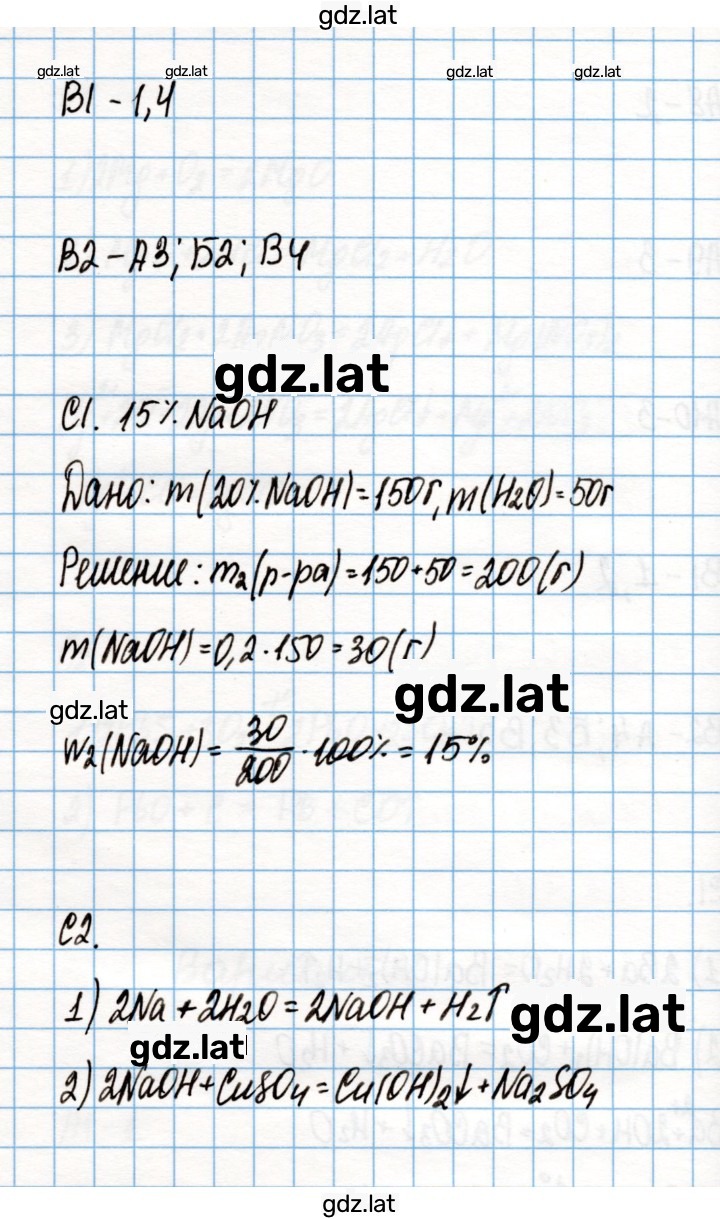 gdz.lat
gdz.lat gdz.lat gdz.lat gdz.lat
В1 - 1,4
В2 - А3; Б2; В4
gdz.lat
С1. 15% NaOH
Дано: m(20% NaOH) = 150г, m(H₂O) = 50г
Решение: m₂(р-ра) = 150 + 50 = 200(г)
m(NaOH) = 0,2 · 150 = 30(г)
gdz.lat
gdz.lat
W₂(NaOH) = 30/200 · 100% = 15%
С2.
1) 2Na + 2H₂O = 2NaOH + H₂↑
gdz.lat
gdz.lat
2) 2NaOH + CuSO₄ = Cu(OH)₂↓ + Na₂SO₄
gdz.lat